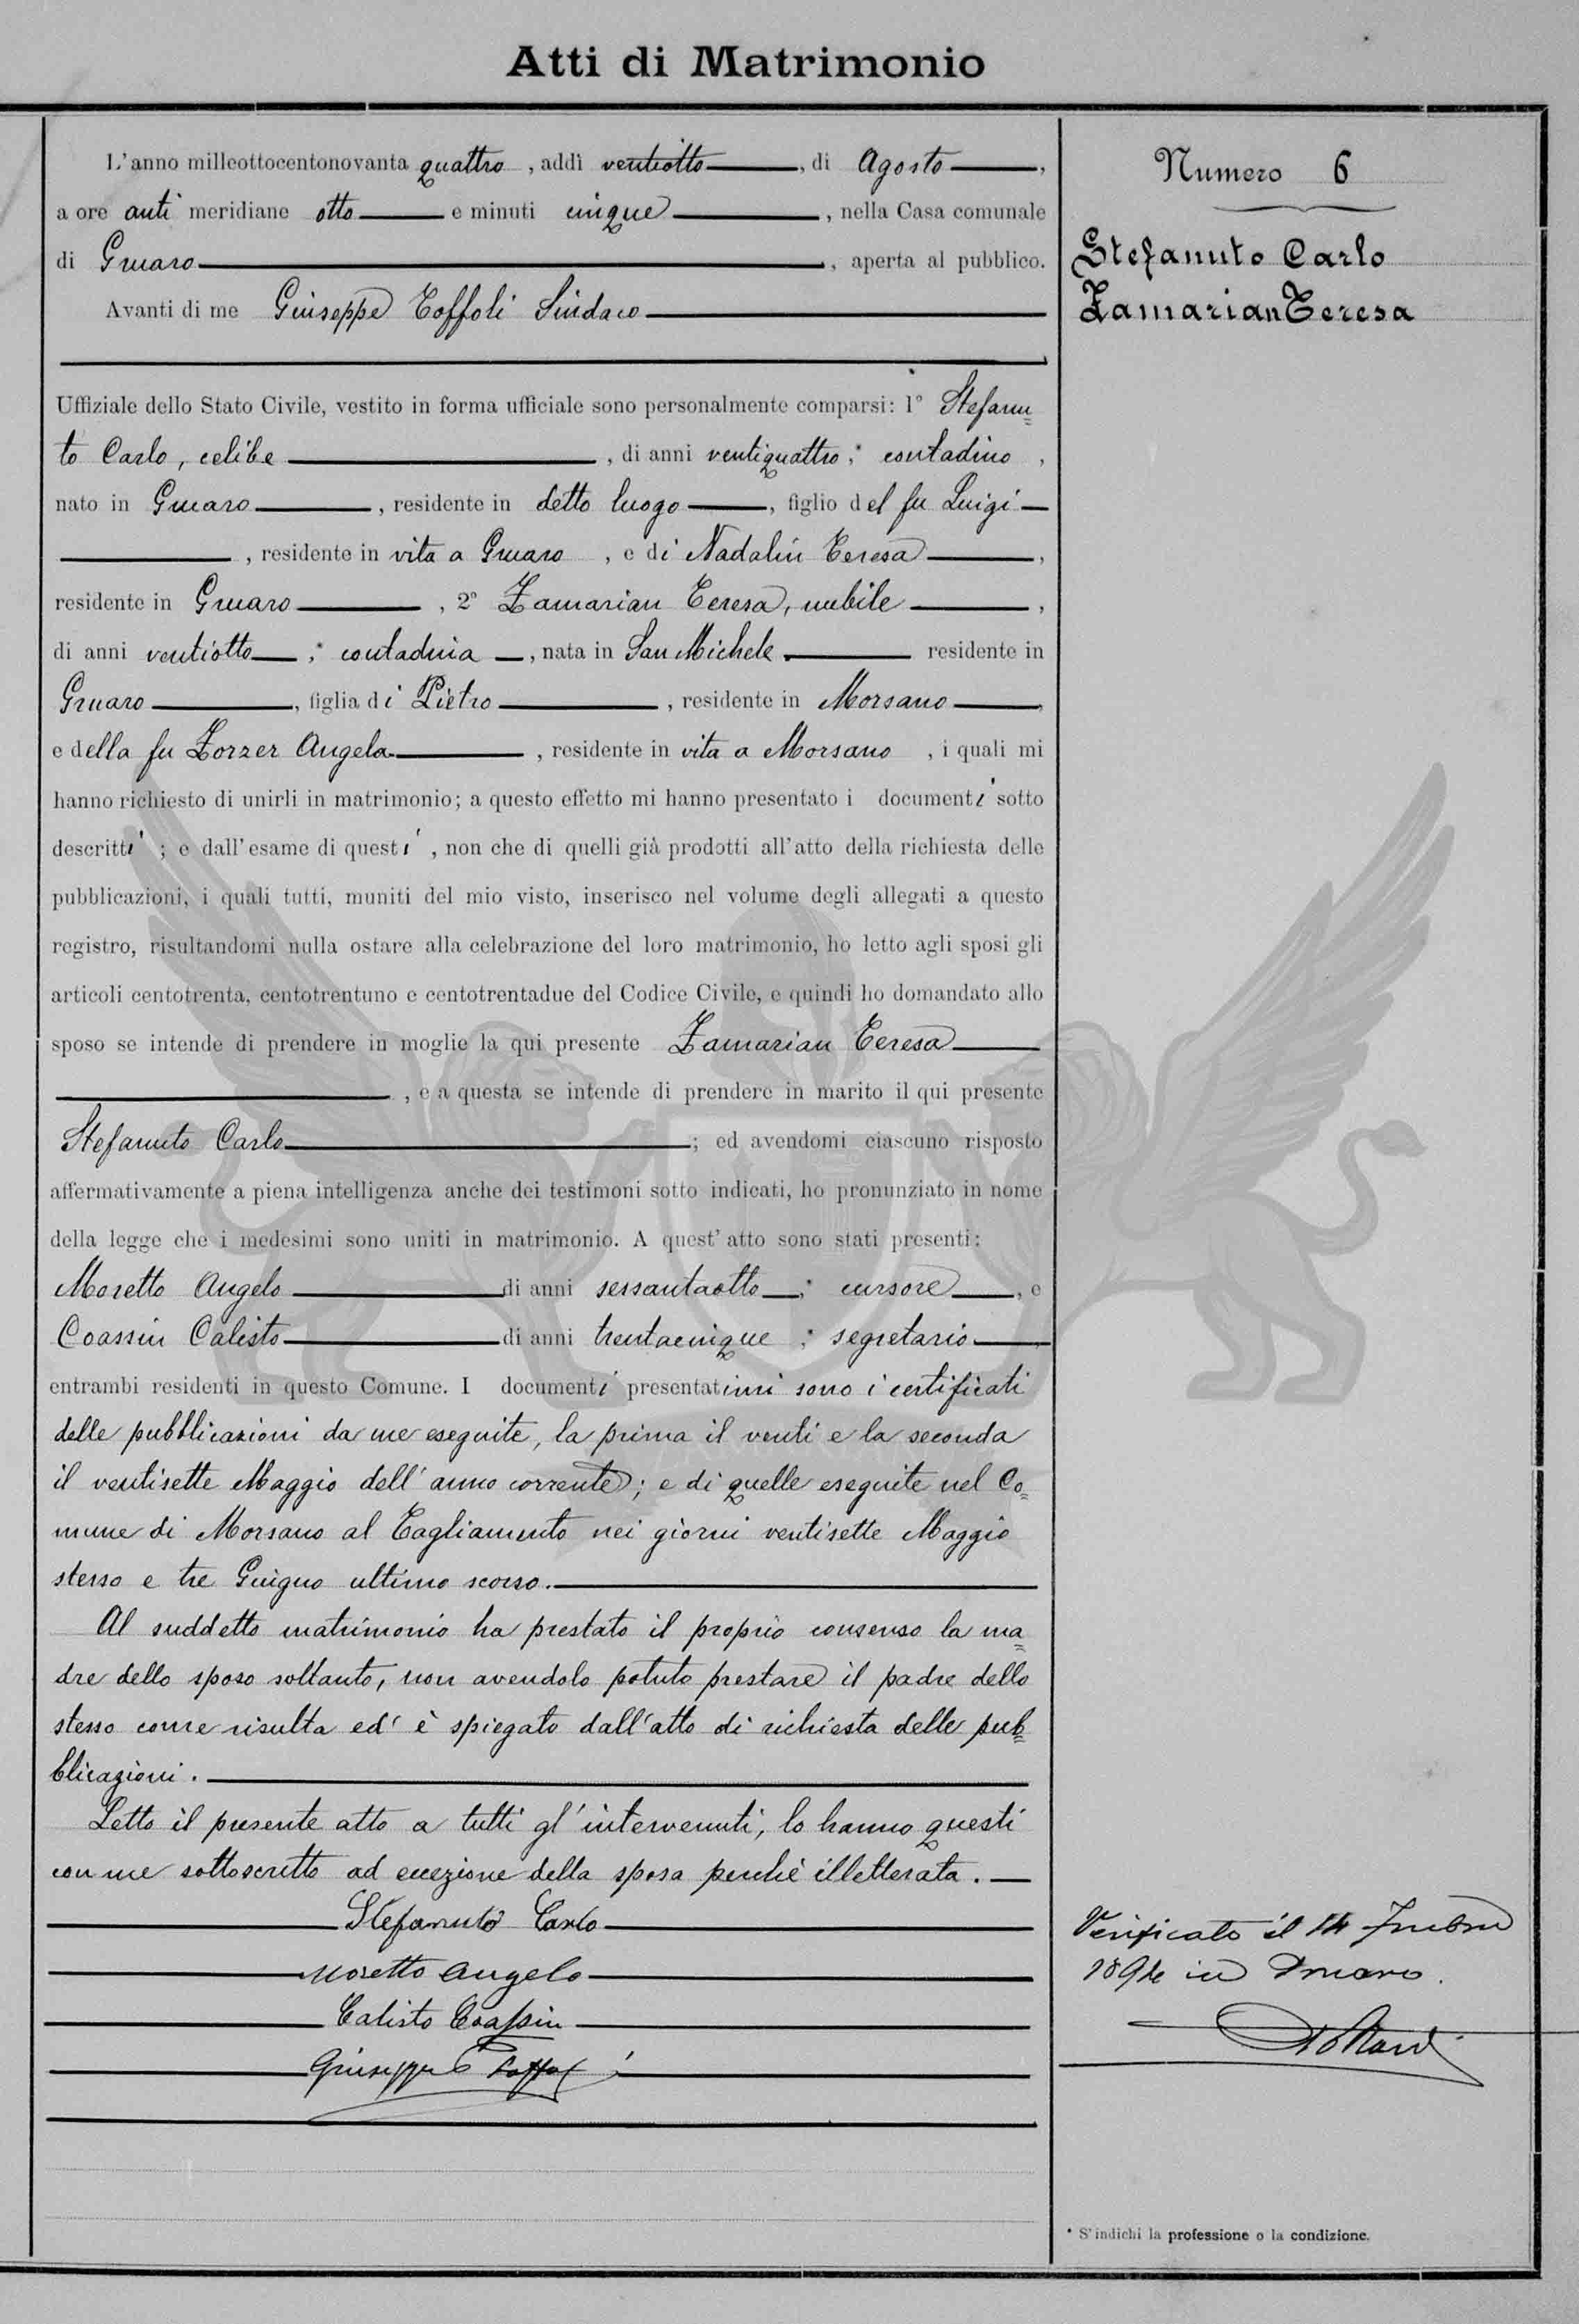 Atti di Matrimonio
L'anno milleottocentonovanta quattro, addì ventiotto, di Agosto,
a ore anti meridiane otto e minuti cinque, nella Casa comunale
di Gruaro, aperta al pubblico.
Avanti di me Giuseppe Toffoli Sindaco
Uffiziale dello Stato Civile, vestito in forma ufficiale sono personalmente comparsi: 1° Stefanu=
to Carlo, celibe, di anni ventiquattro,* contadino,
nato in Gruaro, residente in detto luogo, figlio del fu Luigi
, residente in vita a Gruaro, e di Nadalin Teresa,
residente in Gruaro, 2° Zamarian Teresa, nubile,
di anni ventiotto,* contadina, nata in San Michele residente in
Gruaro, figlia di Pietro, residente in Morsano,
e della fu Zorzer Angela, residente in vita a Morsano, i quali mi
hanno richiesto di unirli in matrimonio; a questo effetto mi hanno presentato i documenti sotto
descritti; e dall'esame di questi, non che di quelli già prodotti all'atto della richiesta delle
pubblicazioni, i quali tutti, muniti del mio visto, inserisco nel volume degli allegati a questo
registro, risultandomi nulla ostare alla celebrazione del loro matrimonio, ho letto agli sposi gli
articoli centotrenta, centotrentuno e centotrentadue del Codice Civile, e quindi ho domandato allo
sposo se intende di prendere in moglie la qui presente Zamarian Teresa
, e a questa se intende di prendere in marito il qui presente
Stefanuto Carlo; ed avendomi ciascuno risposto
affermativamente a piena intelligenza anche dei testimoni sotto indicati, ho pronunziato in nome
della legge che i medesimi sono uniti in matrimonio. A quest'atto sono stati presenti:
Moretto Angelo di anni sessantaotto,* cursore, e
Coassin Calisto di anni trentacinque,* segretario
entrambi residenti in questo Comune. I documenti presentatimi sono i certificati
delle pubblicazioni da me eseguite, la prima il venti e la seconda
il ventisette Maggio dell'anno corrente; e di quelle eseguite nel Co=
mune di Morsano al Tagliamento nei giorni ventisette Maggio
stesso e tre Giugno ultimo scorso.
Al suddetto matrimonio ha prestato il proprio consenso la ma=
dre dello sposo soltanto, non avendolo potuto prestare il padre dello
stesso come risulta ed è spiegato dall'atto di richiesta delle pub=
blicazioni.
Letto il presente atto a tutti gl'intervenuti, lo hanno questi
con me sottoscritto ad eccezione della sposa perchè illetterata.
Stefanuto Carlo
Moretto Angelo
Calisto Coassin
Giuseppe Toffoli
Numero 6
Stefanuto Carlo
Zamarian Teresa
Verificato il 14
1894 in Gruaro.
* S'indichi la professione o la condizione.